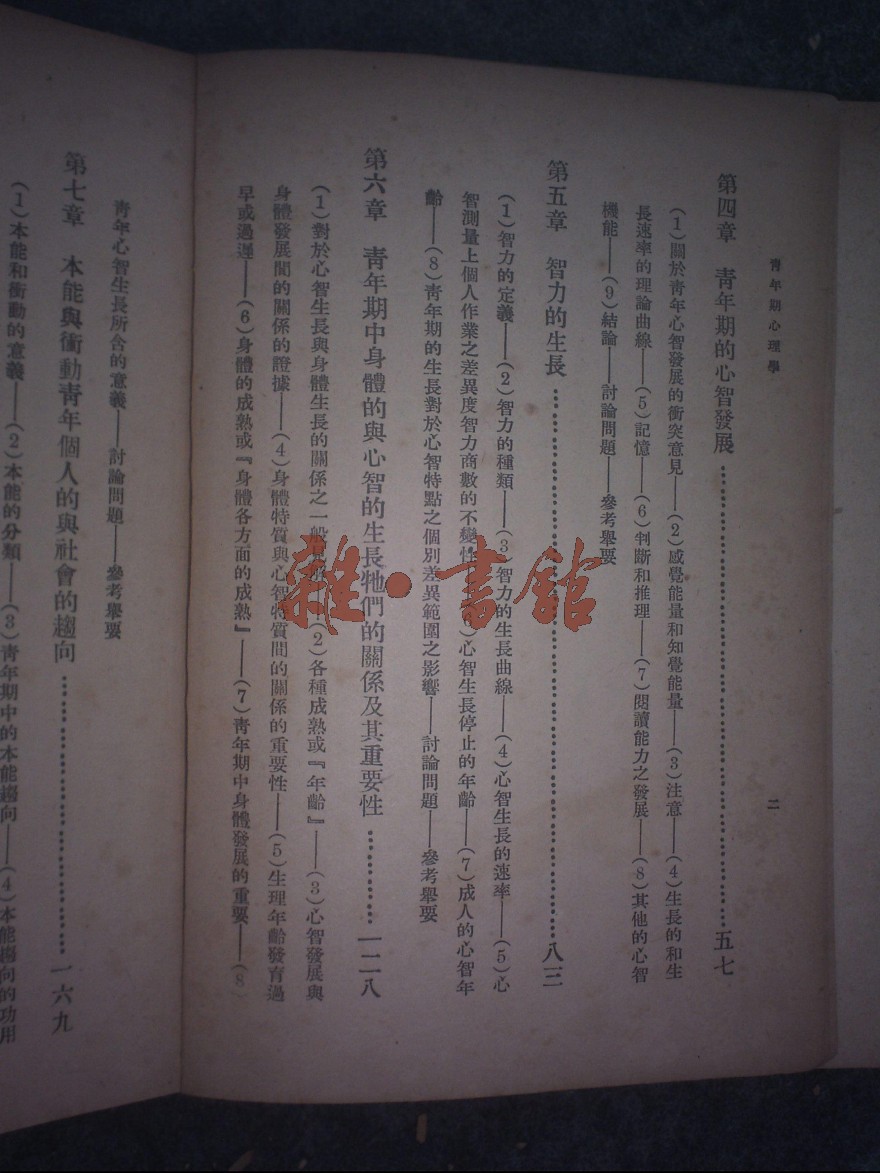 青年期心理學
二
第四章　青年期的心智發展……五七
（1）關於青年心智發展的衝突意見——（2）感覺能量和知覺能量——（3）注意——（4）生長的和生
長速率的理論曲線——（5）記憶——（6）判斷和推理——（7）閱讀能力之發展——（8）其他的心智
機能——（9）結論——討論問題——參考舉要
第五章　智力的生長……八三
（1）智力的定義——（2）智力的種類——（3）智力的生長曲線——（4）心智生長的速率——（5）心
智測量上個人作業之差異度智力商數的不變性——（6）心智生長停止的年齡——（7）成人的心智年
齡——（8）青年期的生長對於心智特點之個別差異範圍之影響——討論問題——參考舉要
第六章　青年期中身體的與心智的生長牠們的關係及其重要性……一二八
（1）對於心智生長與身體生長的關係之一般——（2）各種成熟或『年齡』——（3）心智發展與
身體發展間的關係的證據——（4）身體特質與心智特質間的關係的重要性——（5）生理年齡發育過
早或過遲——（6）身體的成熟或『身體各方面的成熟』——（7）青年期中身體發展的重要——（8）
青年心智生長所含的意義——討論問題——參考舉要
第七章　本能與衝動青年個人的與社會的趨向……一六九
（1）本能和衝動的意義——（2）本能的分類——（3）青年期中的本能趨向——（4）本能趨向的功用
雜·書館